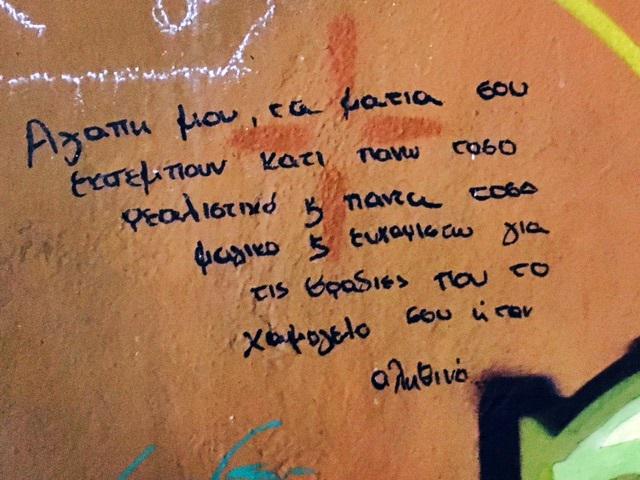 Αγαπη μου, τα ματια σου
εκπεμπουν κατι πανω τοσο
ρεαλιστικό ξ παντα τοσο
μαγικο ξ ευχαριστω για
τις βραδιες που το
χαμογελο σου ήταν
αληθινό